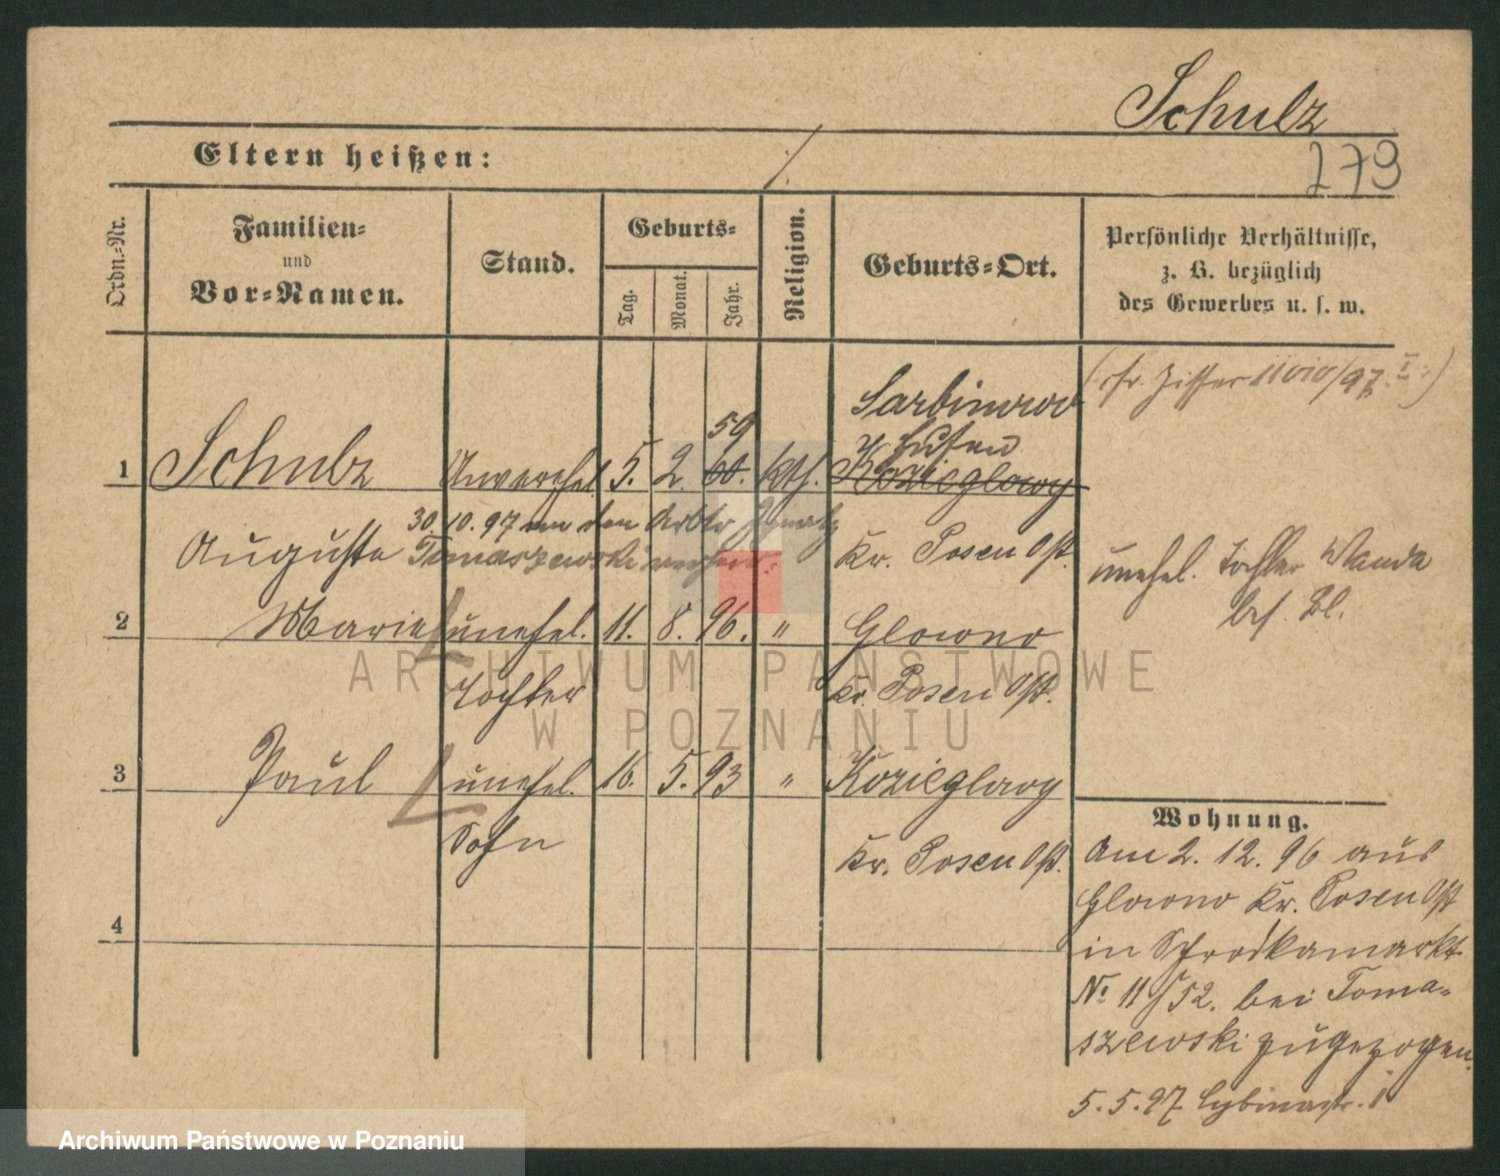 Schulz
279
Eltern heißen: ./.
Ordn.-Nr.
Familien-
und
Vor-Namen.
Stand.
Geburts-
Tag.
Monat.
Jahr.
Religion.
Geburts-Ort.
Persönliche Verhältnisse,
z. B. bezüglich
des Gewerbes u. s. w.
Sarbinowo
59
1 Schulz 5. 2. 60. kth. Kozieglowy
30.10.97 an den Arbtr Ignatz
Auguste Tomaszewski verheir.
Kr. Posen Ost.
unehel. Tochter Wanda
2 Marie unehel. 11. 8. 96. " Glowno
Tochter Kr. Posen Ost.
3 Paul unehel. 16. 5. 93 " Kozieglowy
Sohn Kr. Posen Ost.
4
Wohnung.
Am 2. 12. 96 aus
Glowno Kr. Posen Ost
in Schrodkamarkt
No 11/12. bei Toma-
szewski zugezogen.
5. 5. 97 Cybinastr.
ARCHIWUM PAŃSTWOWE
W POZNANIU
Archiwum Państwowe w Poznaniu